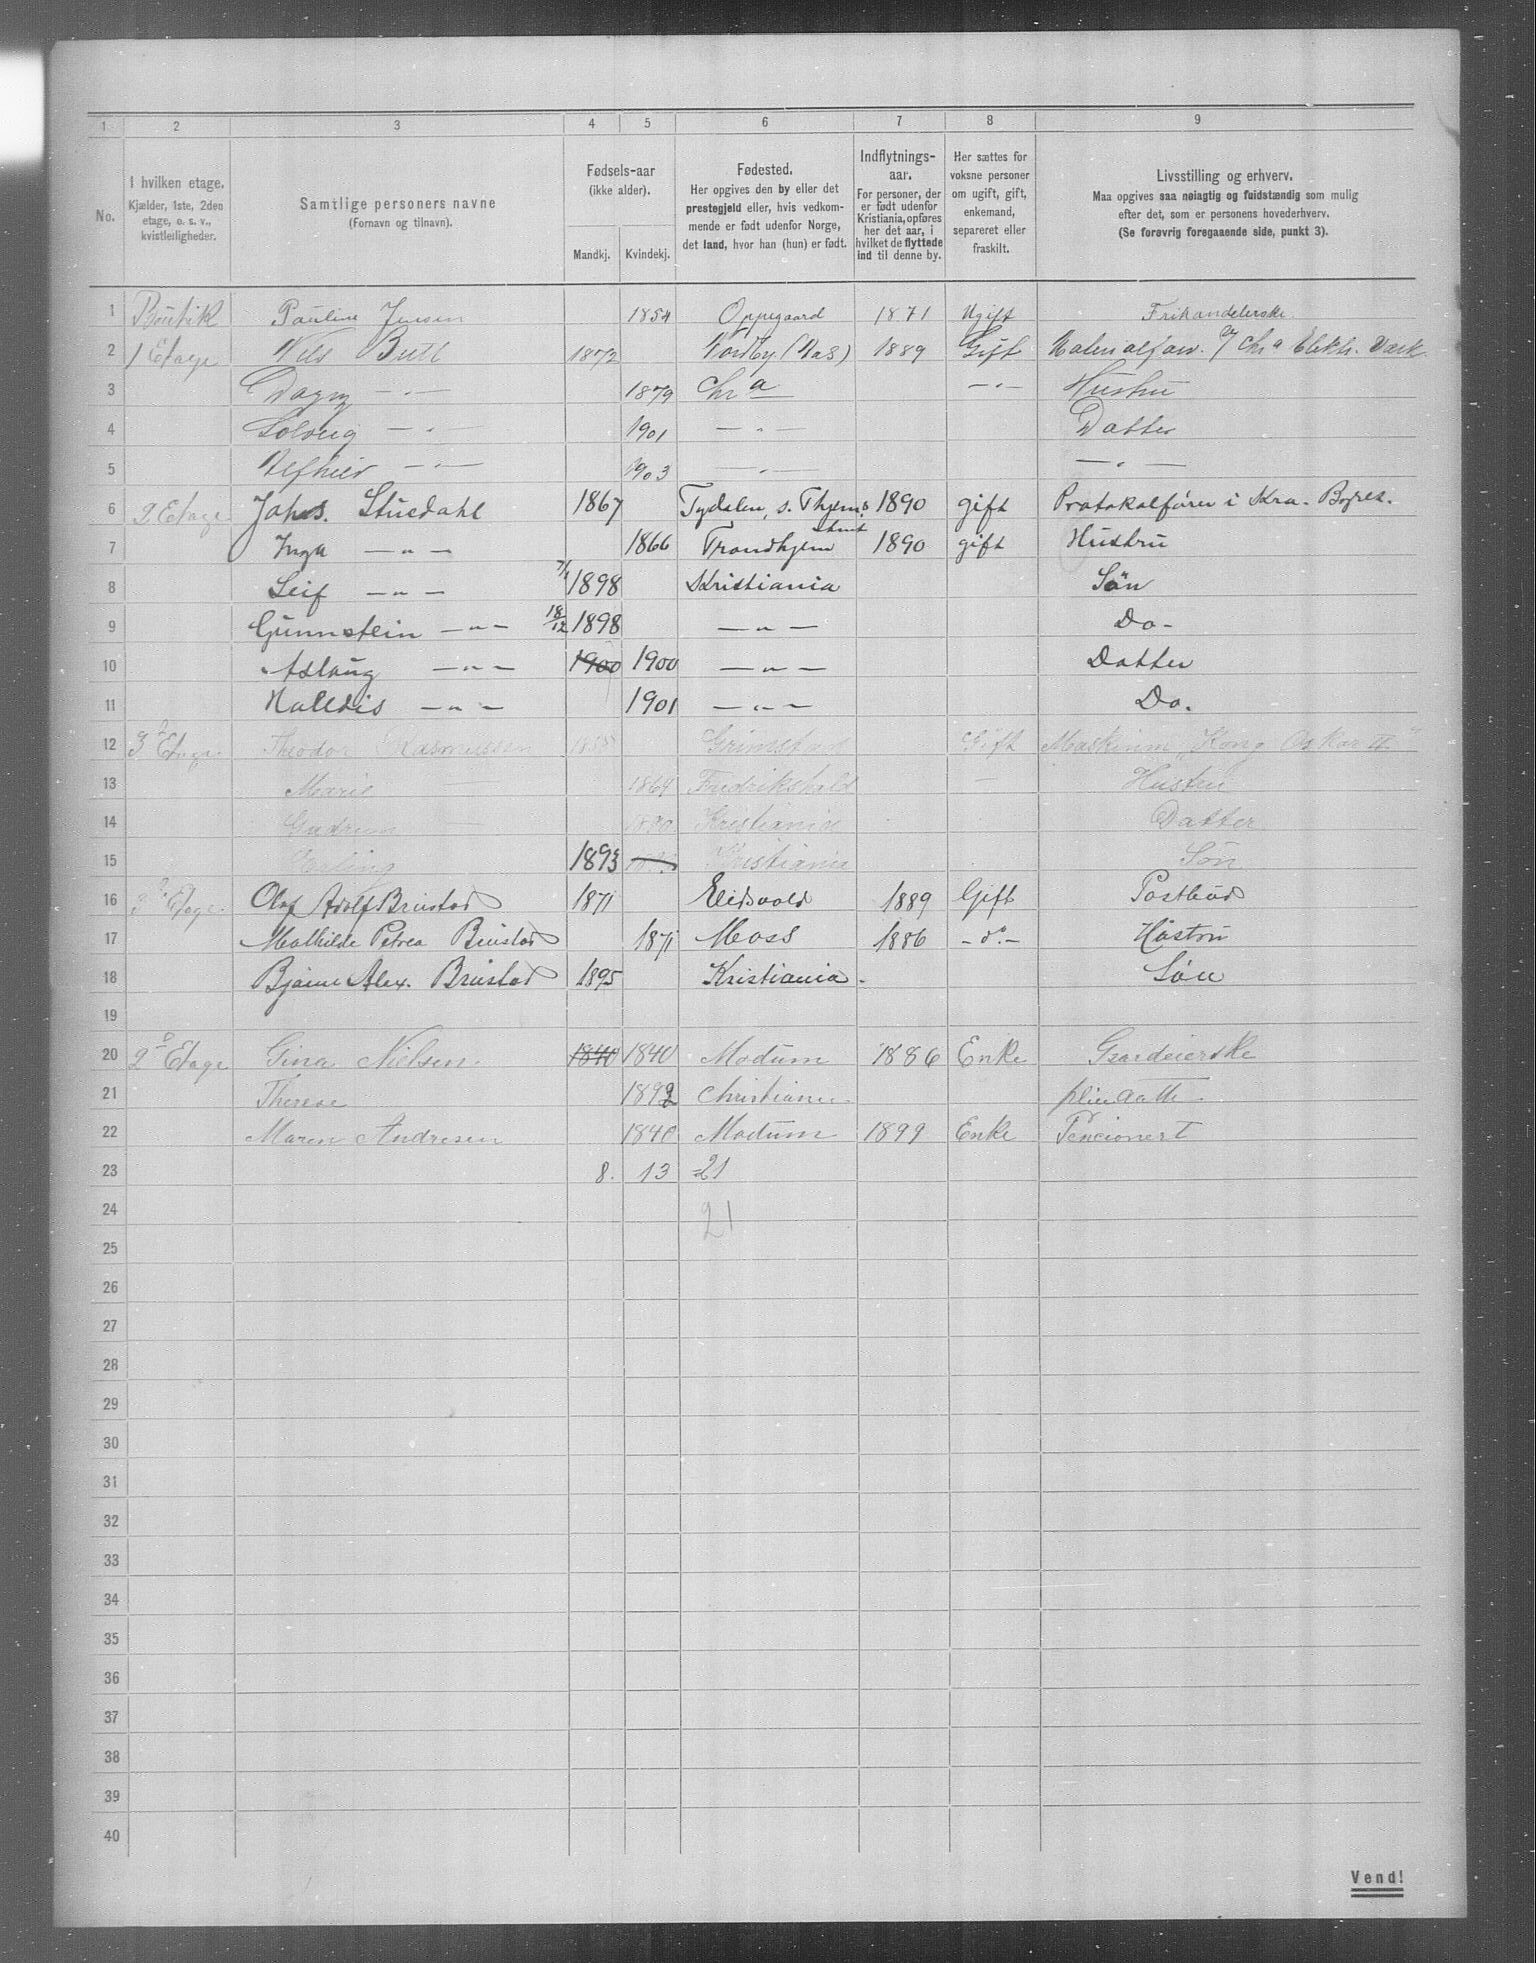 1 2 3 4 5 6 7 8 9
No.
I hvilken etage. Kjælder, 1ste, 2den etage, o. s. v., kvistleiligheder.
Samtlige personers navne (Fornavn og tilnavn).
Fødsels-aar (ikke alder). Mandkj. Kvindekj.
Fødested. Her opgives den by eller det prestegjeld eller, hvis vedkommende er født udenfor Norge, det land, hvor han (hun) er født.
Indflytnings-aar. For personer, der er født udenfor Kristiania, opføres her det aar, i hvilket de flyttede ind til denne by.
Her sættes for voksne personer om ugift, gift, enkemand, separeret eller fraskilt.
Livsstilling og erhverv. Maa opgives saa nøiagtig og fuldstændig som mulig efter det, som er personens hovederhverv. (Se forøvrig foregaaende side, punkt 3).
1 Boutik Pauline Jensen 1854 Oppegaard 1871 Ugift
2 1 Etage Nils Butl 1872 Nordby (Aas) 1889 Gift Chra Elektr.
3 Dagny —"— 1879 Chra —"— Hustru
4 Solveig —"— 1901 —"— Datter
5 —"— 1903 —"— —"—
6 2 Etage Johs. Stusdahl 1867 Tydalen, s. Thjems 1890 gift Protokolfører i Kra. Byret.
7 Inga —"— 1866 Trondhjem 1890 gift Hustru
8 Leif —"— 7/1 1898 Kristiania Søn
9 Gunnstein —"— 18/12 1898 —"— Do-
10 Aslaug —"— 1900 1900 —"— Datter
11 Halldis —"— 1901 —"— Do.
12 3 Etage Theodor Rasmussen Grimstad Gift Maskinm. "Kong Oskar II"
13 Marie 1864 Fredrikshald — Hustru
14 Gudrun Kristiania Datter
15 Erling 1893 Kristiania Søn
16 3 Etage. Olaf Adolf Brustad 1871 Eidsvold 1889 Gift Postbud
17 Mathilde Petrea Brustad 1871 Moss 1886 -do.- Hustru
18 Bjarne Alex. Brustad 1895 Kristiania. Søn
19
20 2 Etage Gina Nielsen. 1840 1840 Modum 1886 Enke
21 Therese 1892 Christiania
22 Maren Andresen 1840 Modum 1899 Enke Pencionert
23 8. 13 =21
24 21
25
26
27
28
29
30
31
32
33
34
35
36
37
38
39
40
Vend!